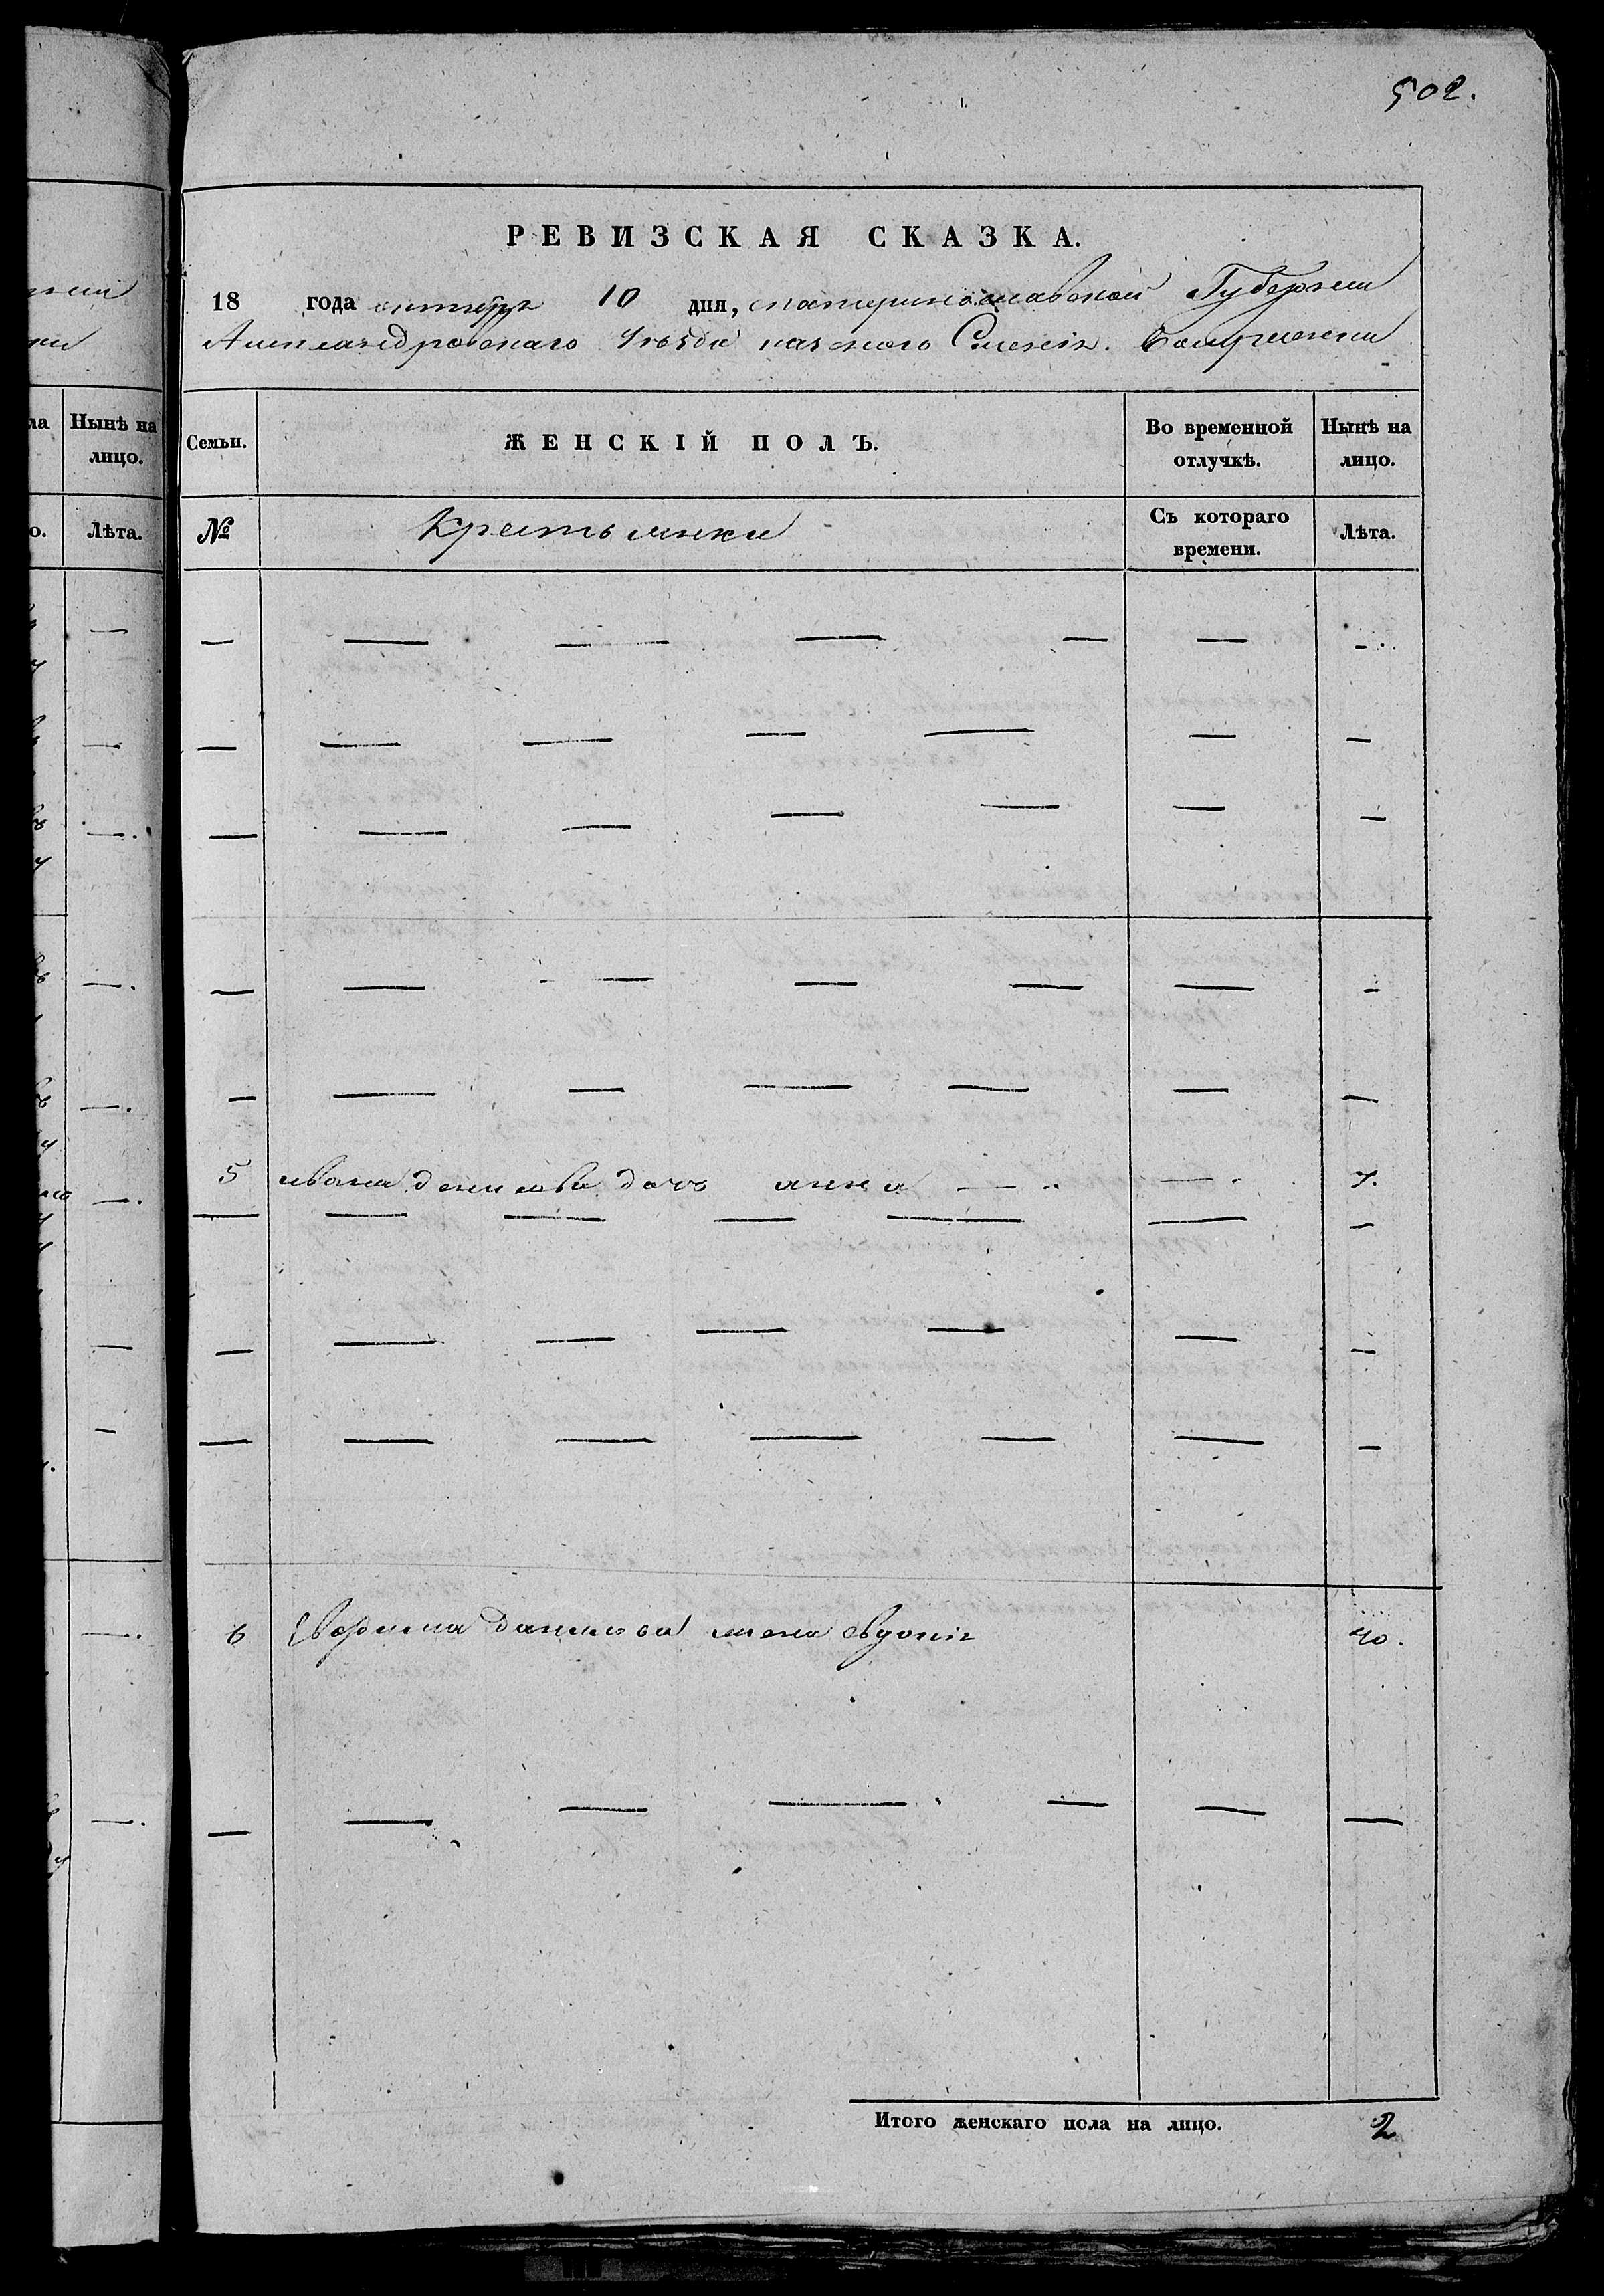 502.
РЕВИЗСКАЯ СКАЗКА.
18 года октября 10 дня, екатеринославской Губернии
Александровскаго Уѣзда казенного Селенія.
Семьи. ЖЕНСКІЙ ПОЛЪ. Во временной отлучкѣ. Нынѣ на лицо.
№ Крестьянки Съ котораго времени. Лѣта.
5 ивана данилова дочь анна — — 7.
6 данилова жена евдокія 40.
Итого женскаго пола на лицо. 2
Нынѣ на
лицо.
Лѣта.